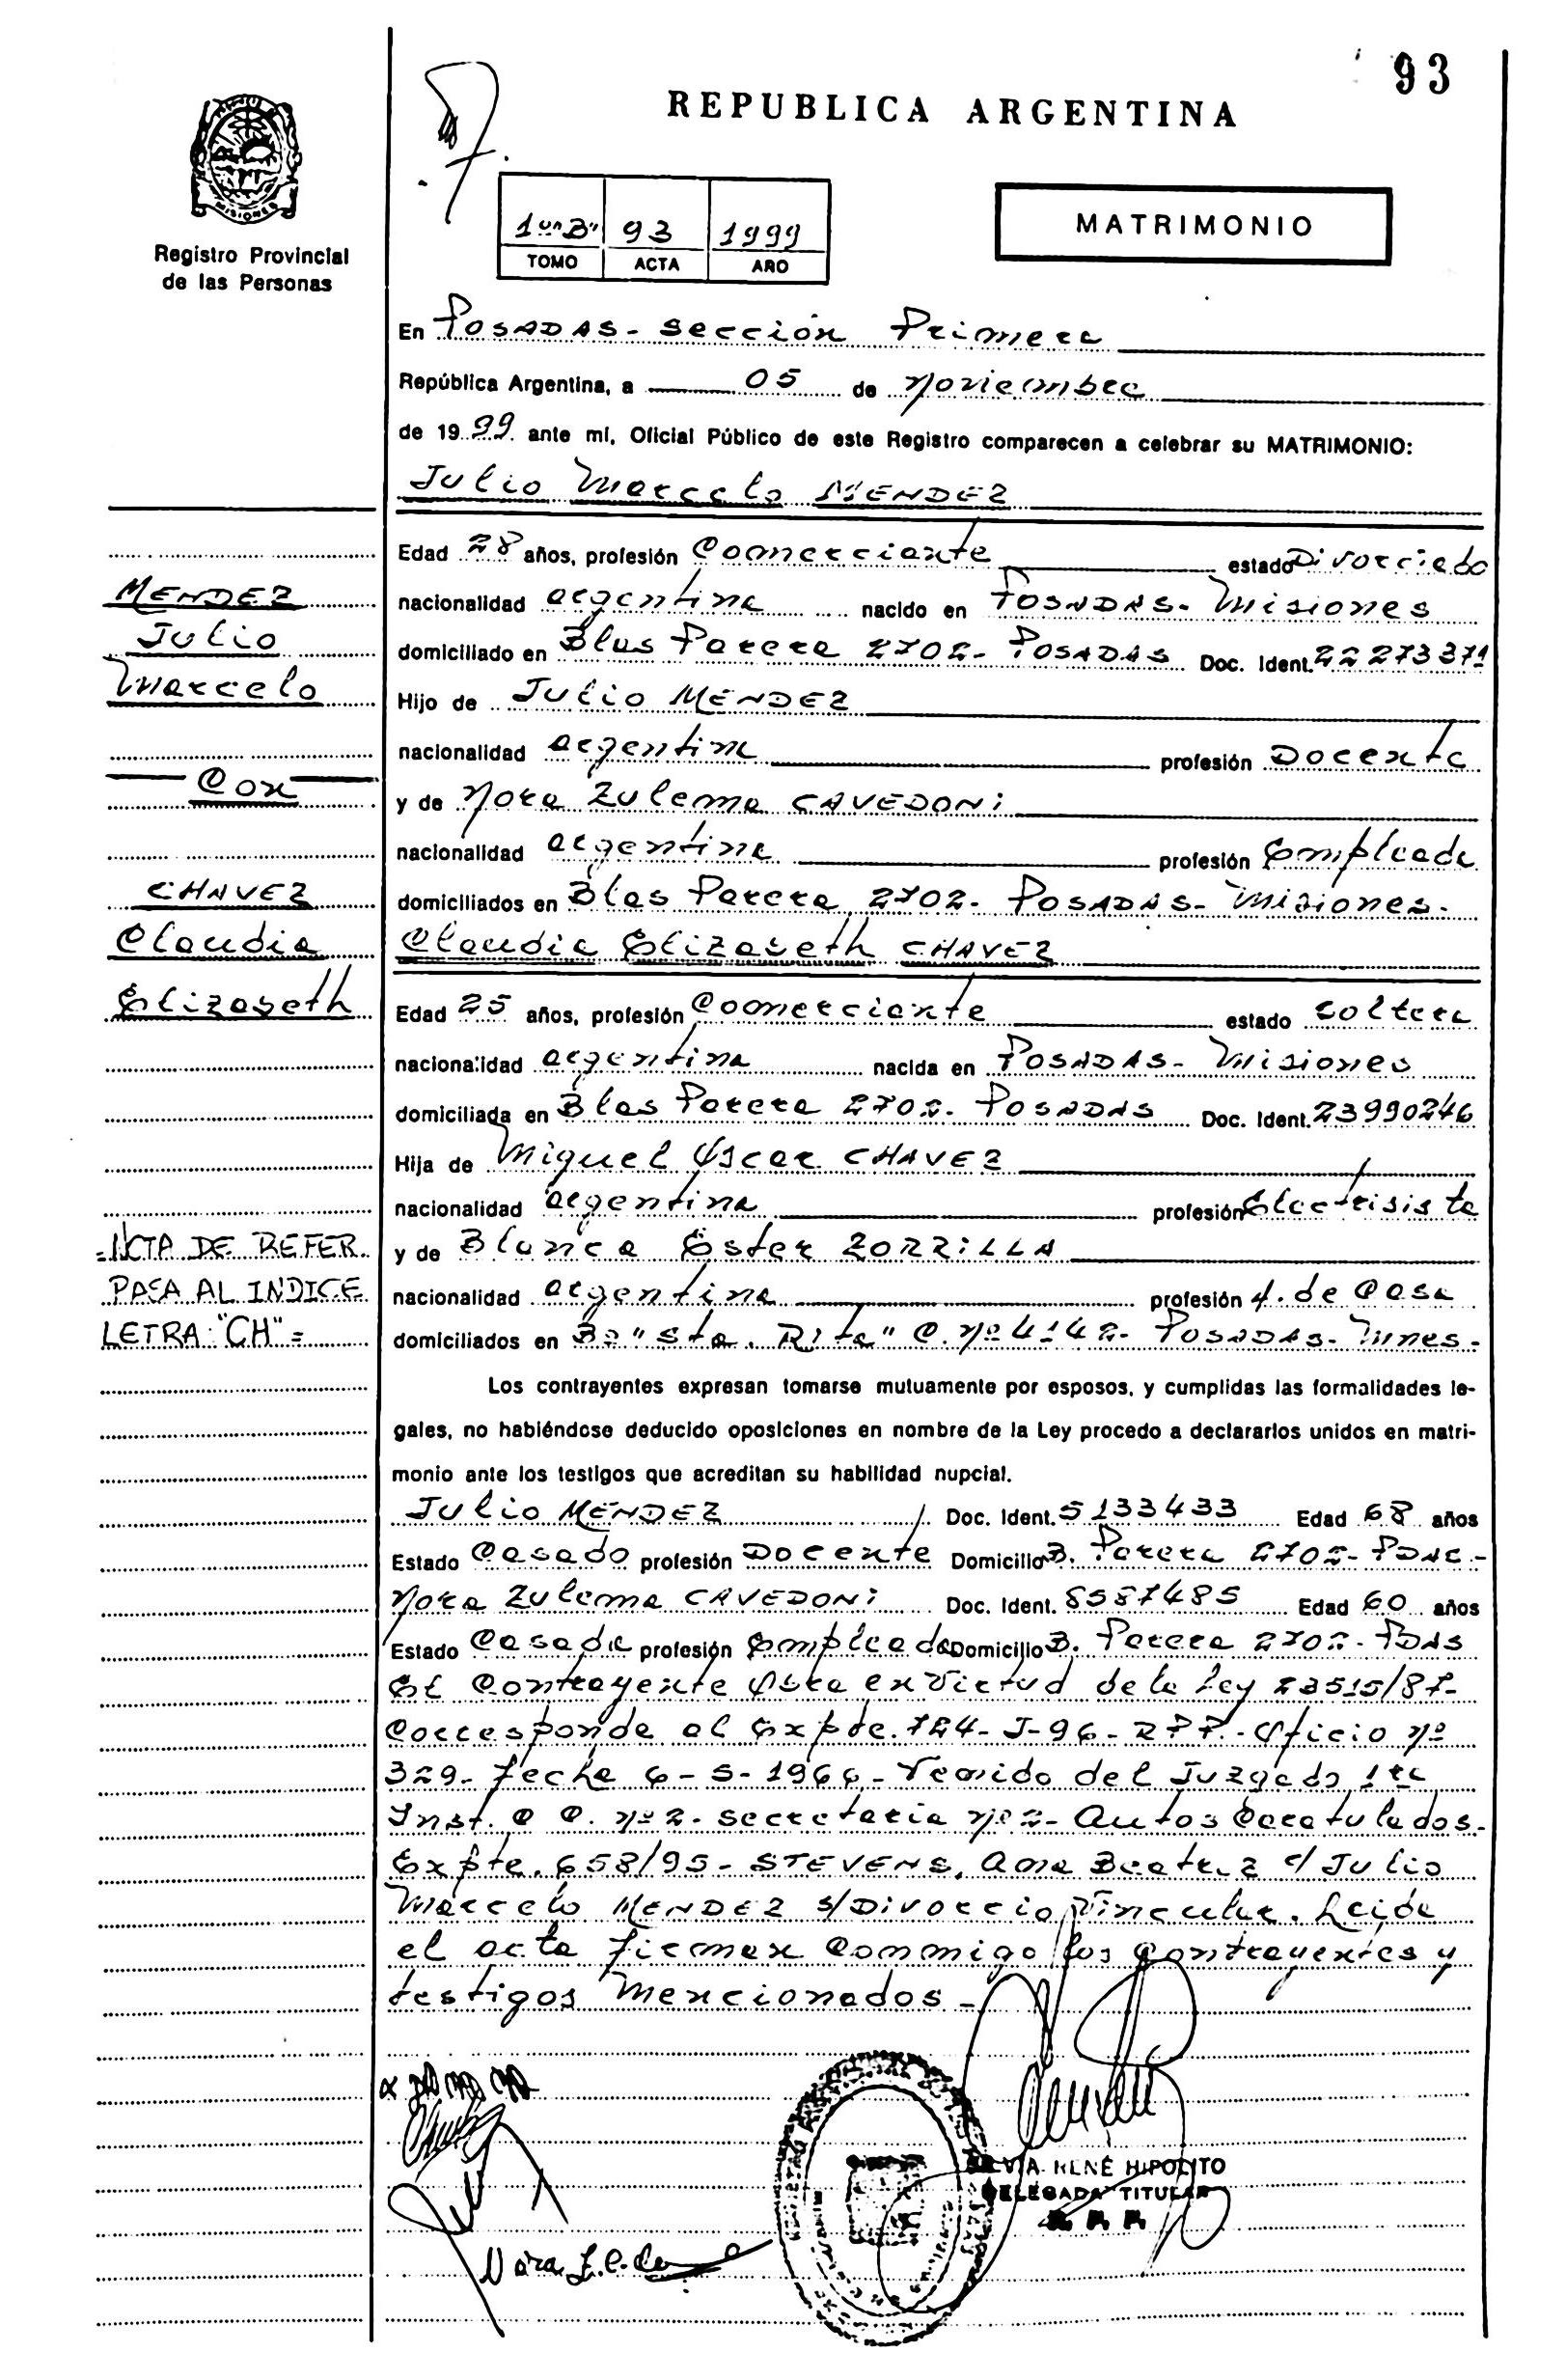 93
REPUBLICA ARGENTINA
MISIONES
Registro Provincial
de las Personas
1º "B" 93 1999
TOMO ACTA AÑO
MATRIMONIO
En POSADAS - Sección Primera
República Argentina, a 05 de Noviembre
de 1999 ante mí, Oficial Público de este Registro comparecen a celebrar su MATRIMONIO:
Julio Marcelo MENDEZ
Edad 28 años, profesión Comerciante estado Divorciado
nacionalidad argentina nacido en POSADAS - Misiones
domiciliado en Blas Parera 2702 - POSADAS Doc. Ident. 22273371
Hijo de Julio MENDEZ
nacionalidad argentina profesión Docente
y de Nora Zulema CAVEDONi
nacionalidad argentina profesión Empleada
domiciliados en Blas Parera 2702 - POSADAS - Misiones -
Claudia Elizabeth CHAVEZ
Edad 25 años, profesión Comerciante estado soltera
nacionalidad argentina nacida en POSADAS - Misiones
domiciliada en Blas Parera 2702 - POSADAS Doc. Ident. 23990246
Hija de Miguel Oscar CHAVEZ
nacionalidad argentina profesión Electrisista
y de Blanca Ester ZORRiLLA
nacionalidad argentina profesión A. de Casa
domiciliados en Bº "Sta. Rita" C. Nº 4142 - POSADAS - Mnes -
Los contrayentes expresan tomarse mutuamente por esposos, y cumplidas las formalidades le-
gales, no habiéndose deducido oposiciones en nombre de la Ley procedo a declararlos unidos en matri-
monio ante los testigos que acreditan su habilidad nupcial.
Julio MENDEZ Doc. Ident. 5133433 Edad 68 años
Estado Casado profesión Docente Domicilio B. Parera 2702 -
Nora Zulema CAVEDONi Doc. Ident. 8587485 Edad 60 años
Estado Casada profesión Empleada Domicilio B. Parera 2702 - PDAS
El Contrayente en Virtud de la Ley 23515/87 -
Corresponde al Expte. 724 - J - 96 - RPP - Oficio Nº
329 - fecha 6 - 5 - 1966 - Venido del Juzgado 1ra
Inst. C C. Nº 2 - secretaria Nº 2 - Autos Caratulados -
Expte. 658/95 - STEVENS, Ana Beatriz c/ Julio
Marcelo MENDEZ s/ Divorcio Vincular. Leida
el acta firman Conmigo los Contrayentes y
testigos Mencionados -
MENDEZ
Julio
Marcelo
Con
CHAVEZ
Claudia
Elizabeth
= NOTA DE REFER.
PASA AL INDICE
LETRA "CH" =
SILVIA RENÉ HIPOLITO
DELEGADA TITULAR
R. P. P.